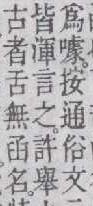 爲㖤。按通俗文
皆渾言之。許舉
古者舌無函名。